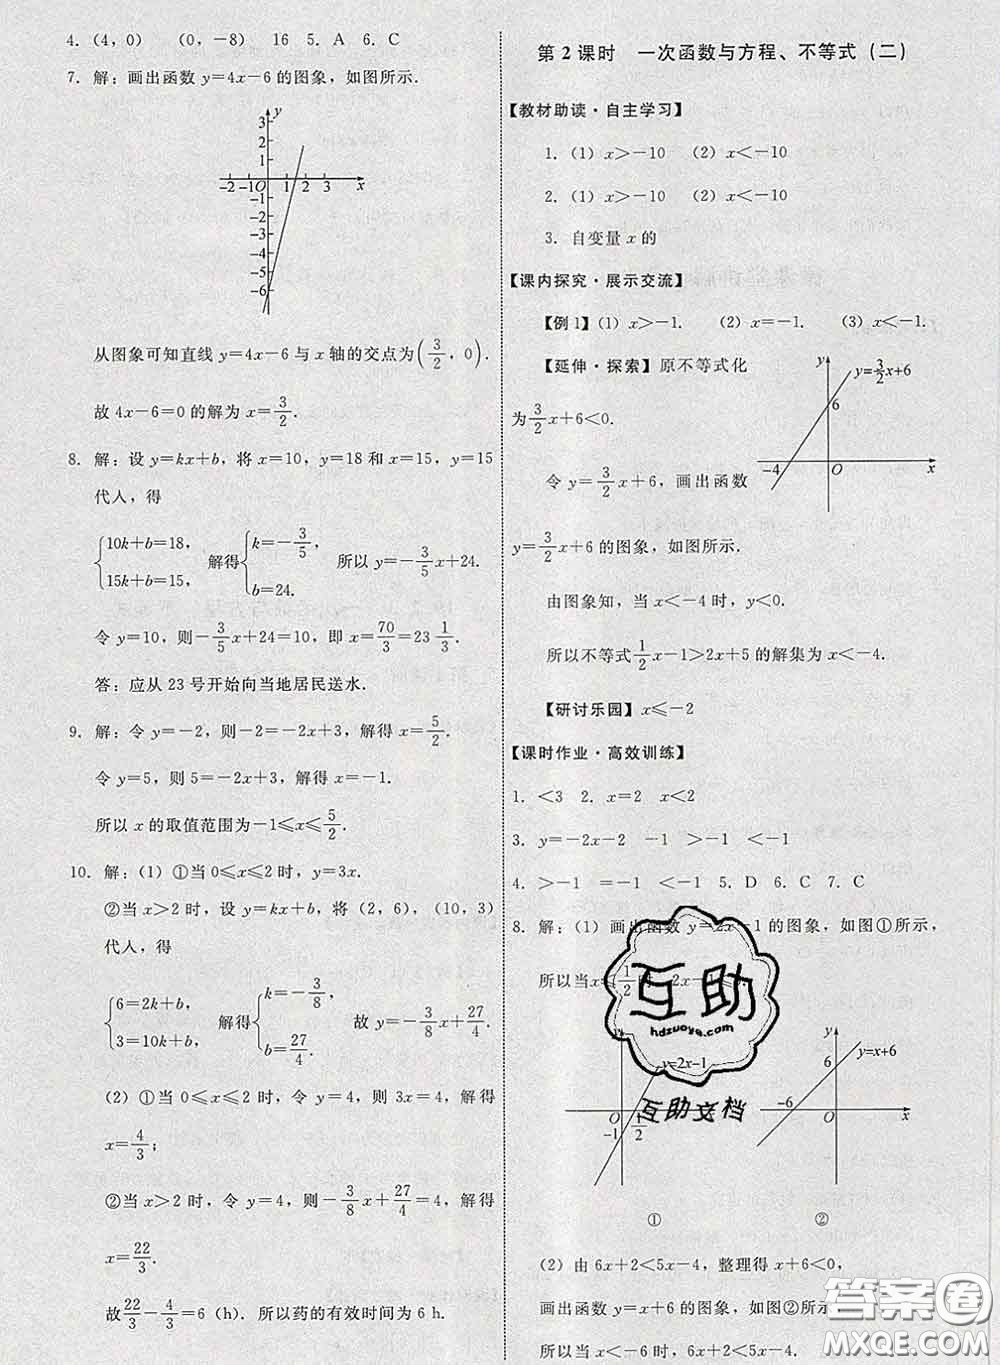 4. (4, 0)  (0, -8)  16  5. A  6. C
7. 解：画出函数 y=4x-6 的图象，如图所示.
y
3
2
1
-2 -1 O 1 2 3 x
-1
-2
-3
-4
-5
-6
从图象可知直线 y=4x-6 与 x 轴的交点为(3/2, 0).
故 4x-6=0 的解为 x=3/2.
8. 解：设 y=kx+b，将 x=10，y=18 和 x=15，y=15
代人，得
{10k+b=18, 15k+b=15, 解得{k=-3/5, b=24. 所以 y=-3/5x+24.
令 y=10，则-3/5x+24=10，即 x=70/3=23 1/3.
答：应从 23 号开始向当地居民送水.
9. 解：令 y=-2，则-2=-2x+3，解得 x=5/2.
令 y=5，则 5=-2x+3，解得 x=-1.
所以 x 的取值范围为-1≤x≤5/2.
10. 解：(1) ①当 0≤x≤2 时，y=3x.
②当 x>2 时，设 y=kx+b，将 (2, 6)，(10, 3)
代人，得
{6=2k+b, 3=10k+b, 解得{k=-3/8, b=27/4. 故 y=-3/8x+27/4.
(2) ①当 0≤x≤2 时，令 y=4，则 3x=4，解得
x=4/3；
②当 x>2 时，令 y=4，则-3/8x+27/4=4，解得
x=22/3.
故22/3-4/3=6 (h). 所以药的有效时间为 6 h.
第 2 课时　一次函数与方程、不等式 (二)
【教材助读·自主学习】
1. (1) x>-10  (2) x<-10
2. (1) x>-10  (2) x<-10
3. 自变量 x 的
【课内探究·展示交流】
【例 1】(1) x>-1.  (2) x=-1.  (3) x<-1.
【延伸·探索】原不等式化
为3/2x+6<0.
令 y=3/2x+6，画出函数
y=3/2x+6 的图象，如图所示.
y
y=3/2x+6
6
-4 O x
由图象知，当 x<-4 时，y<0.
所以不等式1/2x-1>2x+5 的解集为 x<-4.
【研讨乐园】x≤-2
【课时作业·高效训练】
1. <3  2. x=2  x<2
3. y=-2x-2  -1  >-1  <-1
4. >-1  =-1  <-1  5. D  6. C  7. C
8. 解：(1) 画出函数 y=2x-1 的图象，如图①所示，
所以当 x 1/2 时，2x-1
互助
hdzuoye.com
互助文档
y=2x-1
O 1/2
-1
①
y
y=x+6
6
-6 O x
②
(2) 由 6x+2<5x-4，整理得 x+6<0，
画出函数 y=x+6 的图象，如图②所示
当 6x+2<5x-4.
答案圈
MXQE.COM